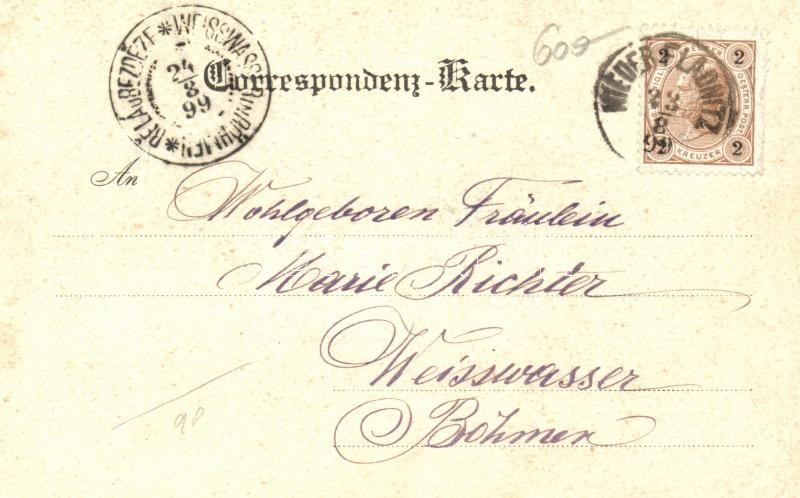 WEISSWASSER IN BÖHMEN * BĚLÁ u BEZDĚZE *
24
8
99
Correspondenz-Karte.
600
2 2
KREUZER
OESTERR. POST
2 2
8
99
An
Wohlgeboren Fräulein
Marie Richter
Weisswasser
Böhmen
90